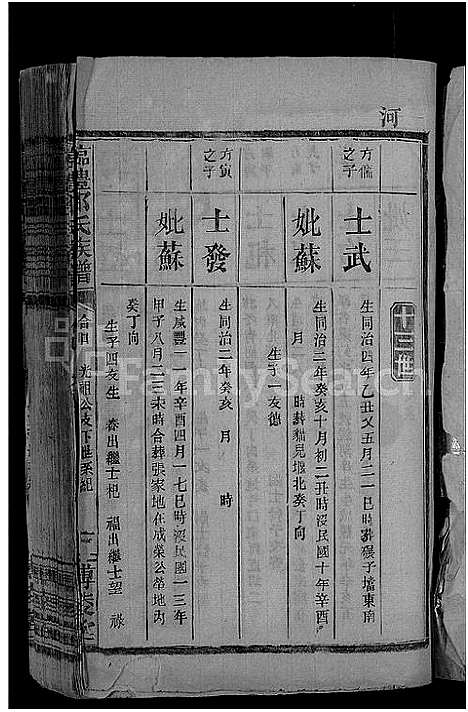 河
十三世
方儒之子
士武
生同治四年乙丑又五月二一巳時葬猴子壋東南
妣蘇
生同治二年癸亥十月初二丑時沒民國十年辛酉
月 時葬貓兒堰北癸丁向
生子一友德
方寅之子
士發
生同治二年癸亥 月 時
妣蘇
生咸豐一一年辛酉四月一七巳時沒民國一三年
甲子八月二三未時合葬張家地在成榮公塋地內
癸丁向
生子四友生 春出繼士杞 福出繼士望 祿
臨澧 氏族譜
合車 光祖公支下世系紀
博陵堂
FamilySearch